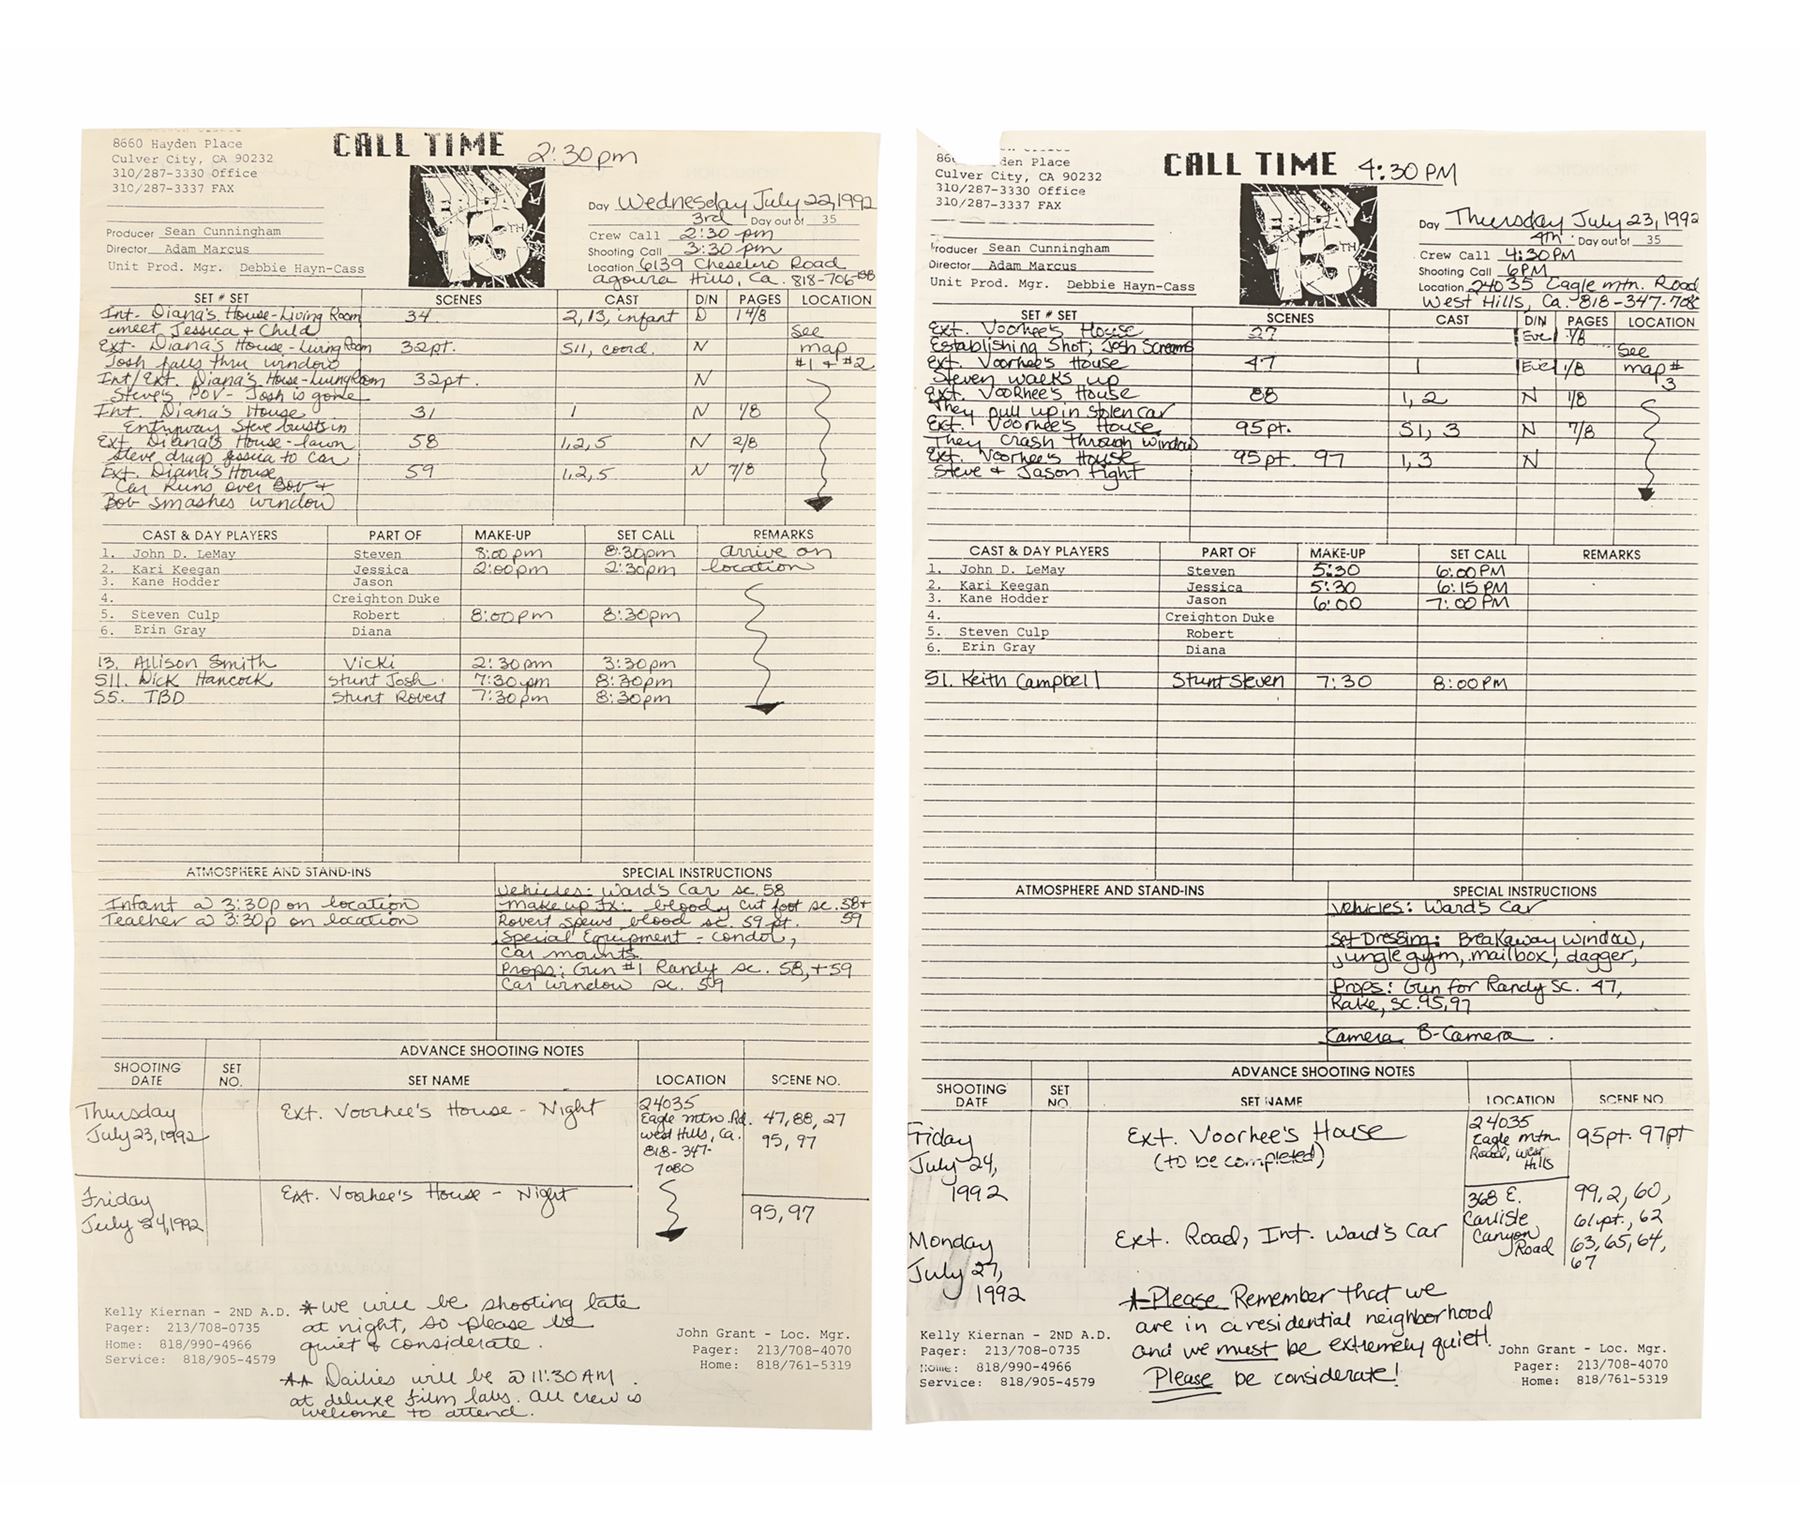 8660 Hayden Place
Culver City, CA 90232
310/287-3330 Office
310/287-3337 FAX
CALL TIME 2:30pm
13TH
Day Wednesday July 22, 1992
3rd Day out of 35
Crew Call 2:30 pm
Shooting Call 3:30 pm
Location 6139 Chesebro Road
Agoura Hills, Ca. 818-706-
Producer Sean Cunningham
Director Adam Marcus
Unit Prod. Mgr. Debbie Hayn-Cass
SET # SET SCENES CAST D/N PAGES LOCATION
Int. Diana's House - Living Room 34 2, 13, infant D 1 4/8
meet Jessica + Child See
Ext. Diana's House - Living Room 32pt. S11, coord. N map
Josh falls thru window #1 + #2
Int/Ext. Diana's House - Living Room 32pt. N
Steve's POV - Josh is gone
Int. Diana's House 31 1 N 1/8
Entryway Steve busts in
Ext. Diana's House - lawn 58 1,2,5 N 2/8
Steve drags Jessica to car
Ext. Diana's House 59 1,2,5 N 7/8
Car Runs over Bob +
Bob smashes window
CAST & DAY PLAYERS PART OF MAKE-UP SET CALL REMARKS
1. John D. LeMay Steven 8:00 pm 8:30pm arrive on
2. Kari Keegan Jessica 2:00pm 2:30pm location
3. Kane Hodder Jason
4. Creighton Duke
5. Steven Culp Robert 8:00pm 8:30pm
6. Erin Gray Diana
13. Allison Smith Vicki 2:30pm 3:30pm
S11. Dick Hancock Stunt Josh 7:30pm 8:30pm
S5. TBD Stunt Robert 7:30pm 8:30pm
ATMOSPHERE AND STAND-INS SPECIAL INSTRUCTIONS
Vehicles: Ward's Car sc. 58
Infant @ 3:30p on location Makeup Fx: bloody cut foot sc. 58+
Teacher @ 3:30p on location Robert spews blood sc. 59 pt. 59
Special Equipment - condor,
Car mounts
Props: Gun #1 Randy sc. 58, + 59
Car window sc. 59
ADVANCE SHOOTING NOTES
SHOOTING DATE SET NO. SET NAME LOCATION SCENE NO.
Thursday July 23, 1992 Ext. Voorhee's House - Night 24035 Eagle mtn. Rd. West Hills, Ca. 818-347-7080 47, 88, 27 95, 97
Friday July 24, 1992 Ext. Voorhee's House - Night 95, 97
Kelly Kiernan - 2ND A.D.
Pager: 213/708-0735
Home: 818/990-4966
Service: 818/905-4579
* we will be shooting late
at night, so please be
quiet & considerate.
** Dailies will be @ 11:30AM.
at deluxe film labs. all crew is
welcome to attend.
John Grant - Loc. Mgr.
Pager: 213/708-4070
Home: 818/761-5319
86 den Place
Culver City, CA 90232
310/287-3330 Office
310/287-3337 FAX
CALL TIME 4:30 PM
13TH
Day Thursday July 23, 1992
4th Day out of 35
Crew Call 4:30PM
Shooting Call 6PM
Location 24035 Eagle mtn. Road
West Hills, Ca. 818-347-708
Producer Sean Cunningham
Director Adam Marcus
Unit Prod. Mgr. Debbie Hayn-Cass
SET # SET SCENES CAST D/N PAGES LOCATION
Ext. Voorhee's House 27 Eve 1/8
Establishing Shot; Josh Screams See
Ext. Voorhee's House 47 1 Eve 1/8 map #
Steven walks up 3
Ext. Voorhee's House 88 1, 2 N 1/8
They pull up in stolen car
Ext. Voorhee's House 95pt. S1, 3 N 7/8
They Crash Through window
Ext. Voorhee's House 95pt. 97 1,3 N
Steve & Jason Fight
CAST & DAY PLAYERS PART OF MAKE-UP SET CALL REMARKS
1. John D. LeMay Steven 5:30 6:00 PM
2. Kari Keegan Jessica 5:30 6:15 PM
3. Kane Hodder Jason 6:00 7:00 PM
4. Creighton Duke
5. Steven Culp Robert
6. Erin Gray Diana
S1. Keith Campbell Stunt Steven 7:30 8:00PM
ATMOSPHERE AND STAND-INS SPECIAL INSTRUCTIONS
Vehicles: Ward's Car
Set Dressing: Breakaway window,
jungle gym, mailbox, dagger,
Props: Gun for Randy sc. 47,
Rake, sc. 95, 97
Camera B-Camera.
ADVANCE SHOOTING NOTES
SHOOTING DATE SET NO. SET NAME LOCATION SCENE NO.
Friday July 24, 1992 Ext. Voorhee's House (to be completed) 24035 Eagle mtn. Road, West Hills 95pt. 97pt
Monday July 27, 1992 Ext. Road, Int. Ward's Car 368 E. Carlisle Canyon Road 99, 2, 60, 61pt., 62 63, 65, 64, 67
* Please Remember that we
are in a residential neighborhood
and we must be extremely quiet!
Please be considerate!
Kelly Kiernan - 2ND A.D.
Pager: 213/708-0735
Home: 818/990-4966
Service: 818/905-4579
John Grant - Loc. Mgr.
Pager: 213/708-4070
Home: 818/761-5319